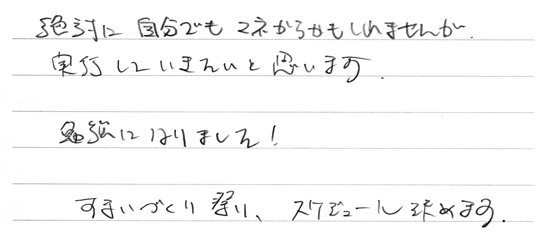 絶対に 自分でも マネからかもしれませんが、
実行していきたいと思います。
勉強になりました!
すまいづくり 、スケジュール決めます。